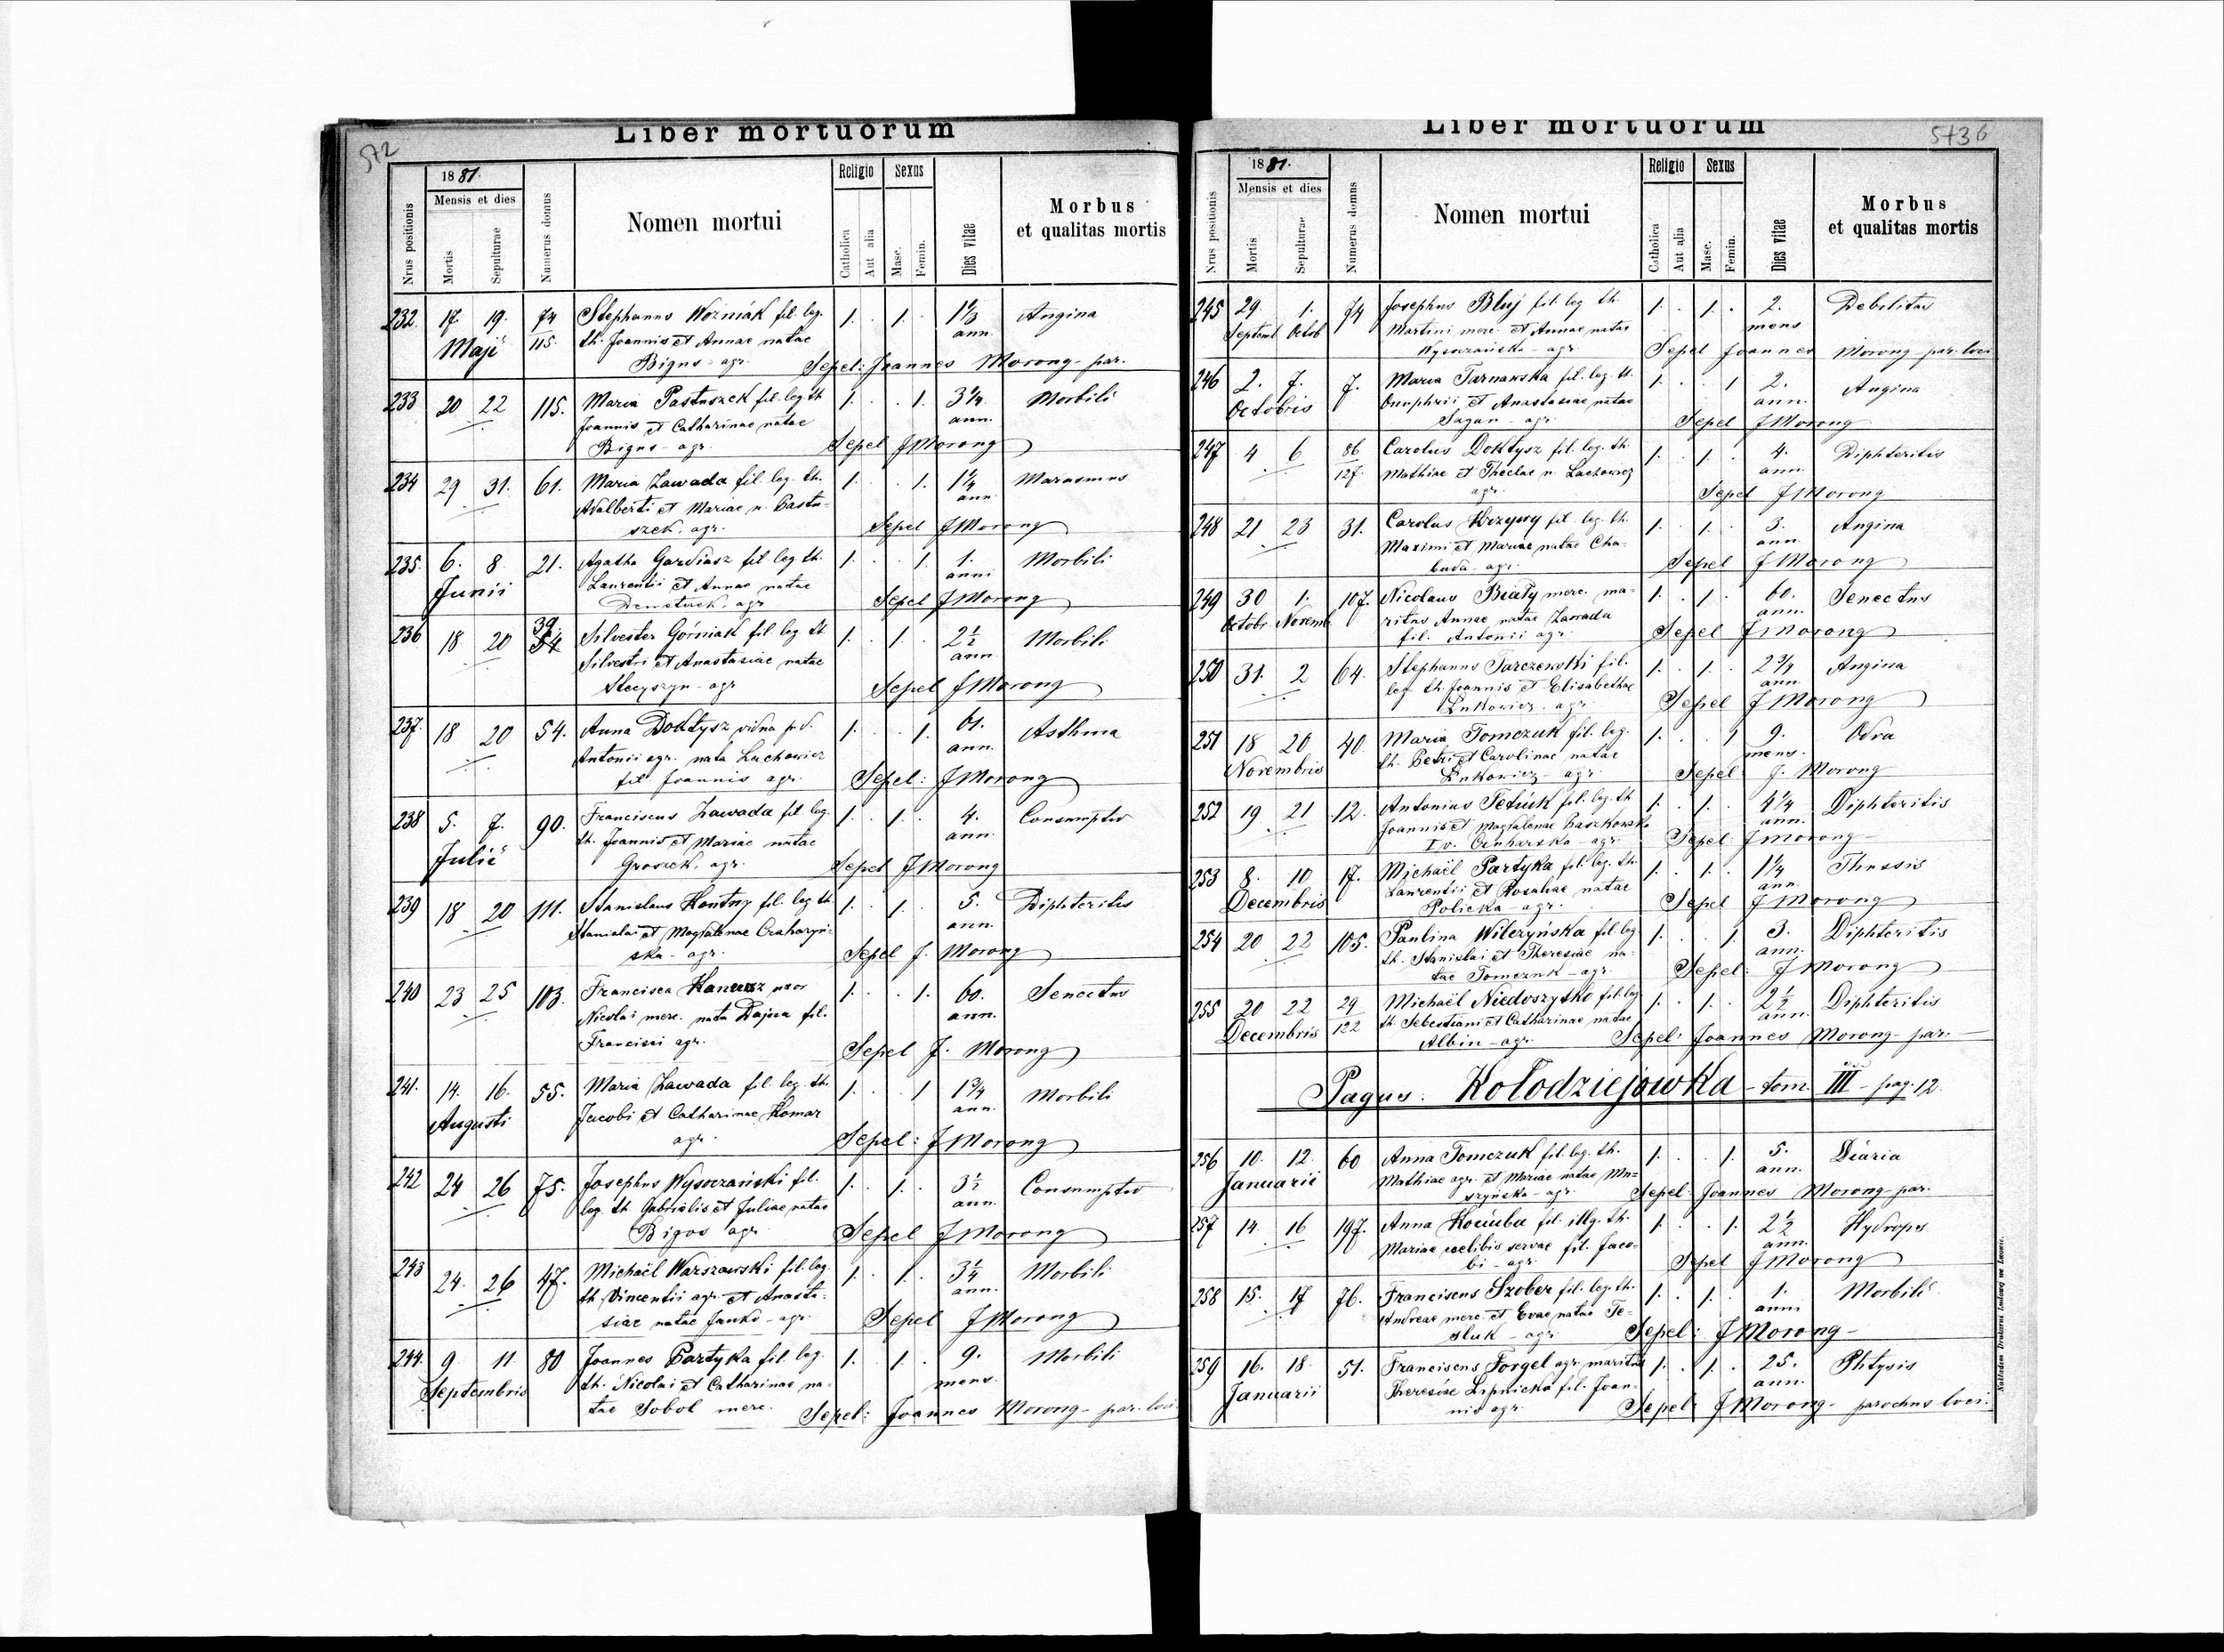 572
Liber mortuorum
Nrus positionis
1881.
Mensis et dies
Mortis
Sepulturae
Numerus domus
Nomen mortui
Religio
Catholica
Aut alia
Sexus
Masc.
Femin.
Dies vitae
Morbus
et qualitas mortis
232 17. 19. 74 Stephanus Woźniák fil. leg. 1. 1. 1⅓ Angina
Maji 115. th. Joannis et Annae natae ann.
Bigus - agr. Sepel: Joannes Morong - par.
233 20 22 115. Maria Pastuszek fil. leg th 1. 1. 3¼ Morbili
Joannis et Catharinae natae ann.
Bigus - agr. Sepel J Morong
234 29 31. 61. Maria Zawada fil. leg. th. 1. 1. 1¼ Marasmus
Adalberti et Mariae n. Pastu- ann
szek. agr. Sepel J Morong
235. 6. 8 21. Agatha Gardiasz fil leg th. 1. 1. 1. Morbili
Junii Laurentii et Annae natae anni
agr Sepel J Morong
236 18 20 39. 54 Silvester Górniak fil. leg th 1. 1. 2½ Morbili
Silvestri et Anastasiae natae ann
Steczyszyn - agr Sepel J Morong
237. 18 20 54. Anna Doktysz vidua p. d. 1. 1. 61. Asthma
Antonii agr. nata Lachowicz ann.
fil Joannis agr. Sepel: J Morong
238 5. 7. 90. Franciscus Zawada fil leg. 1. 1. 4. Consumptio
Julii th. Joannis et Mariae natae ann.
Groszek. agr. Sepel J Morong
239 18 20 111. Stanislaus Kontny fil. leg th. 1. 1. 5. Diphteritis
Stanislai et Magdalenae ann.
ska - agr. Sepel J. Morong
240 23 25 103. Francisca uxor 1. 1. 60. Senectus
Nicolai merc. nata Dajcza fil. ann.
Francisci agr. Sepel J. Morong
241. 14. 16. 55. Maria Zawada fil leg. th. 1. 1 1¾ Morbili
Augusti Jacobi et Catharinae Komar ann.
agr. Sepel: J Morong
242 24 26 75. Josephus Wysoczański fil. 1. 1. 3½ Consumptio
leg. th. Gabrielis et Juliae natae ann.
Bigos agr. Sepel J Morong
243 24. 26 47. Michaël Warszawski fil. leg. 1. 1. 3¼ Morbili
th. Vincentii agr. et Anasta- ann.
siae natae Janko - agr. Sepel J Morong
244. 9 11 80 Joannes Partyka fil. leg. 1. 1. 9. Morbili
Septembris th. Nicolai et Catharinae na- mens.
tae Sobol merc. Sepel: Joannes Morong - par. loci
5736
Liber mortuorum
Nrus positionis
1881.
Mensis et dies
Mortis
Sepulturae
Numerus domus
Nomen mortui
Religio
Catholica
Aut alia
Sexus
Masc.
Femin.
Dies vitae
Morbus
et qualitas mortis
245 29. 1. 74 Josephus Bluj fil. leg th. 1. 1. 2. Debilitas
Septemb Octob Martini merc. et Annae natae mens
Wysoczańska - agr. Sepel Joannes Morong - par. loci
246 2. 7. 7. Maria Tarnawska fil. leg. th. 1. 1 2. Angina
Octobris Onuphrii et Anastasiae natae ann.
Sagan - agr. Sepel J Morong
247 4 6 86 Carolus Doktysz fil. leg. th. 1. 1. 4. Diphteritis
127. Mathiae et Theclae n. Lachowicz ann.
agr. Sepel J Morong
248 21 23 31. Carolus Krzywy fil. leg. th. 1. 1. 3. Angina
Maximi et Mariae natae Cha- ann.
buda - agr. Sepel J Morong
249 30 1. 107. Nicolaus Biały merc. ma- 1. 1. 60. Senectus
Octobr. Novemb. ritus Annae natae Zawada ann.
fil. Antonii agr. Sepel J Morong
250 31. 2 64. Stephanus Tarczewski fil. 1. 1. 2¾ Angina
leg. th. Joannis et Elisabethae ann
Lukowicz. agr. Sepel J Morong
251 18 20 40. Maria Tomczuk fil. leg. 1. 1 9. Odra
Novembris th. Petri et Carolinae natae mens.
Lukowicz - agr. Sepel J. Morong
252 19 21 12. Antonius Tetiuk fil. leg. th 1. 1. 4¼ Diphteritis
Joannis et Magdalenae Paszkowska ann.
agr. Sepel J Morong -
253 8. 10 17. Michaël Partyka fil. leg. th. 1. 1. 1¼ Thussis
Decembris Laurentii et Rosaliae natae ann.
Policka - agr. Sepel J Morong
254 20 22 105. Paulina Wilczyńska fil leg 1. 1. 3. Diphteritis
th. Stanislai et Theresiae na- ann.
tae Tomczuk - agr. Sepel: J Morong
255 20 22 29 Michaël Niedoszytko fil. leg 1. 1. 2½ Diphteritis
Decembris 122 th. Sebestiani et Catharinae natae ann.
Albin - agr. Sepel: Joannes Morong - par. -
Pagus: Kołodziejówka - tom. III - pag. 12.
256 10. 12. 60 Anna Tomczuk fil. leg. th. 1. 1. 5. Diaria
Januarii Mathiae agr. et Mariae natae Mu- ann.
szyńska - agr. Sepel Joannes Morong - par.
257 14. 16 197. Anna Kociuba fil. illg. th. 1. 1. 2½ Hydrops
Mariae coelibis servae fil. Jaco- ann.
bi - agr. Sepel J Morong
258 15. 17 76. Franciscus Szober fil. leg. th. 1. 1. 1. Morbili
Andreae merc. et Evae natae Te- anni
sluk - agr. Sepel: J Morong -
259 16. 18. 51. Franciscus Forgel agr. maritus 1. 1. 25. Phtysis
Januarii Theresiae Lipnicka fil. Joan- ann.
nis agr. Sepel: J Morong - parochus loci.